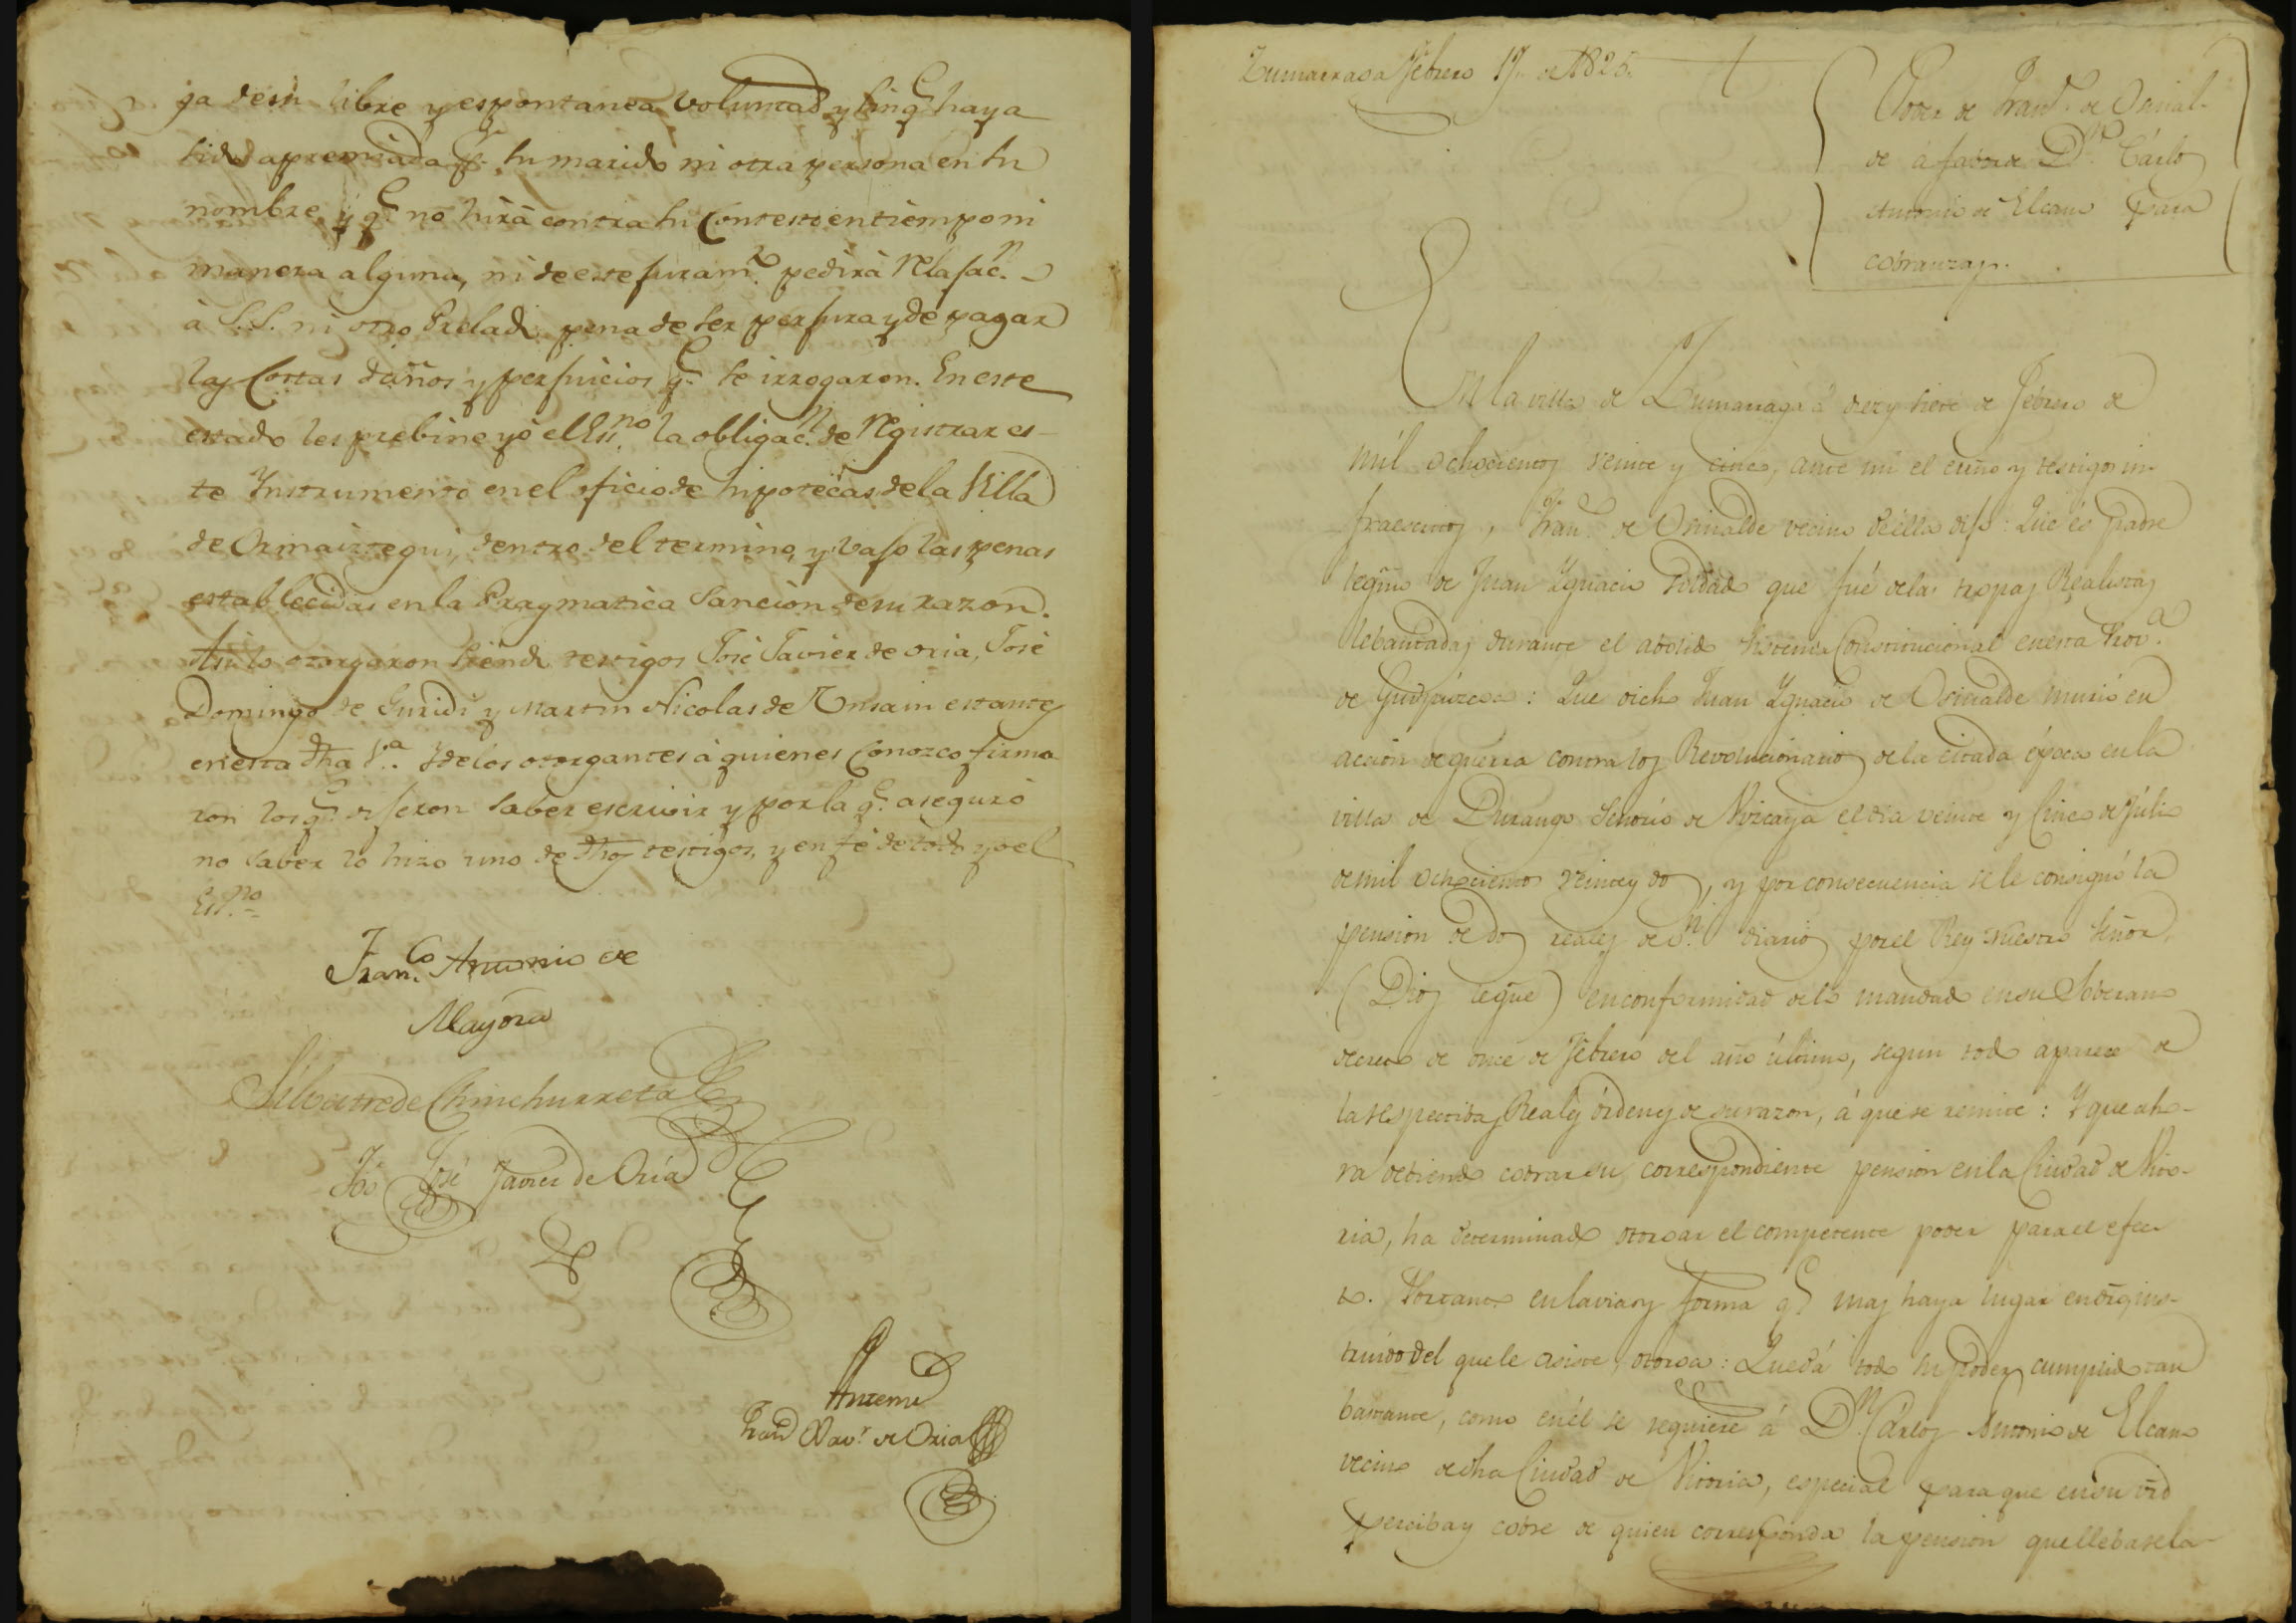 ga de su libre y espontanea voluntad y sin q.e haya
sido apremiada p.r su marido ni otra persona en su
nombre, y q.e no hirá contra su contesto en tiempo ni
manera alguna, ni de este juram.to pedirá relajac.n
à S.S. ni otro Prelado pena de ser perjura y de pagar
las Costas daños y perjuicios q.e se irrogaron. En este
estado les prebine yo el Es.no la obligac.n de registrar es-
te Ynstrumento en el oficio de hipotecas de la Villa
de Ormaiztegui, dentro del termino, y vajo las penas
establecidas en la Pragmatica Sancion de su razon.
Asi lo otorgaron siendo testigos José Javier de Oria, José
Domingo de Guridi y Martin Nicolas de Unsain estantes
en esta dha V.a Y de los otorgantes à quienes conozco firma-
ron los q.e dijeron saber escrivir y por la q.e aseguró
no saber lo hizo uno de dhos testigos, y en fé de todo yo el
Es.no
Fran.co Antonio de
Mayora
Silvestre de Chinchurreta
Tgo José Javier de Oria
Antemi
Fran.co Xav.r de Oria
Zumarraga Febrero 17 de 1825.
Poder de Fran.co de Osinal-
de á favor de D.n Cárlos
Antonio de Elcano para
cobranzas.
En la villa de Zumarraga á diez y siete de Febrero de
mil ochocientos veinte y cinco, ante mi el esno y testigos in-
fraescritos, Fran.co de Osinalde vecino de ella dijo: Que és padre
legmo de Juan Ygnacio soldado que fué de las tropas Realistas
lebantadas durante el abolido sistema Constitucional en esta Prov.a
de Guipúzcoa: Que dicho Juan Ygnacio de Osinalde murió en
accion de guerra contra los Revolucionarios de la citada época en la
villa de Durango Señorio de Vizcaya el dia veinte y Cinco de Júlio
de mil ochocientos veinte y dos, y por consecuencia se le consignó la
pension de dos reales de v.n diarios por el Rey Nuestro Señor,
(Dios le gue) en conformidad de lo mandado en su Soberano
decreto de once de Febrero del año último, segun todo aparece de
las respectibas Reales órdenes de su razon, á que se remite: Y que aho-
ra debiendo cobrar su correspondiente pension en la Ciudad de Vito-
ria, ha determinado otorgar el competente poder para el efec-
to. Por tanto en la via y forma q.e mas haya lugar en dro, ins-
truido del que le asiste, otorga: Que dá todo su poder cumplido tan
bastante, como en él se requiere á D.n Cárlos Antonio de Elcano
vecino de dha Ciudad de Vitoria, especial para que en su vrd
perciba y cobre de quien corresponda la pension que lleba rela-